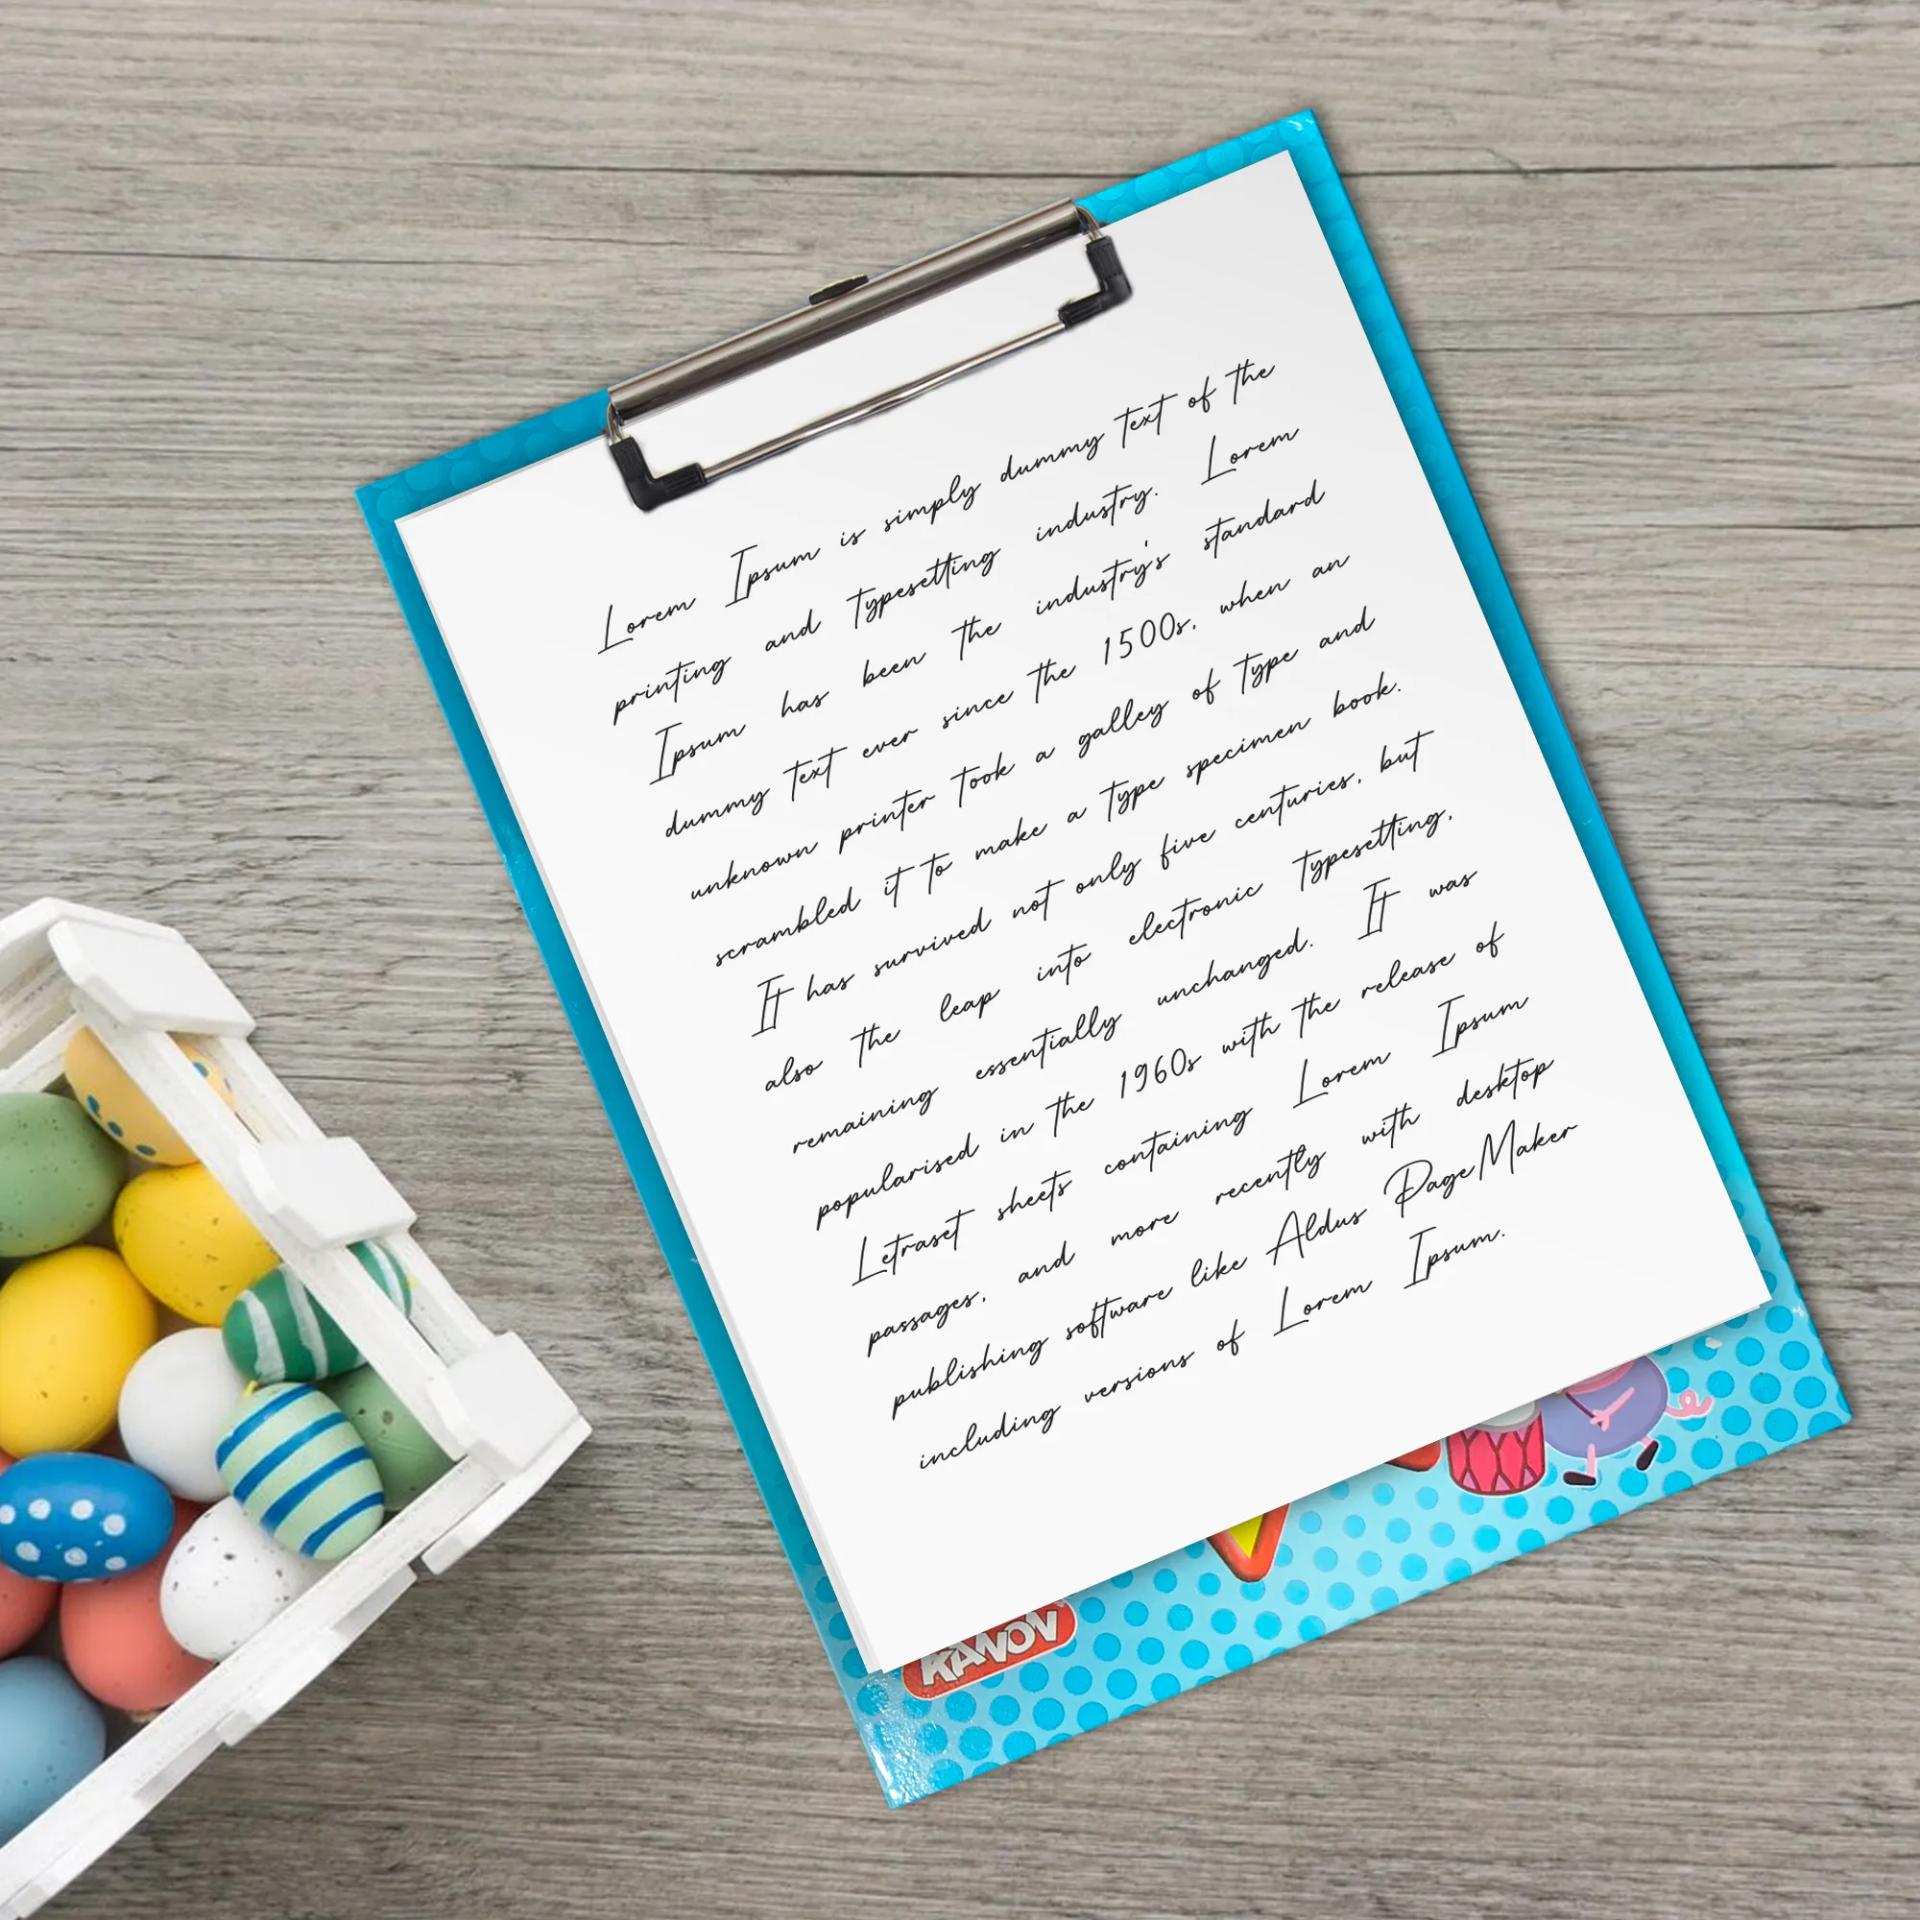 Lorem Ipsum is simply dummy text of the
printing and typesetting industry. Lorem
Ipsum has been the industry's standard
dummy text ever since the 1500s, when an
unknown printer took a galley of type and
scrambled it to make a type specimen book.
It has survived not only five centuries, but
also the leap into electronic typesetting,
remaining essentially unchanged. It was
popularised in the 1960s with the release of
Letraset sheets containing Lorem Ipsum
passages, and more recently with desktop
publishing software like Aldus PageMaker
including versions of Lorem Ipsum.
KANOV